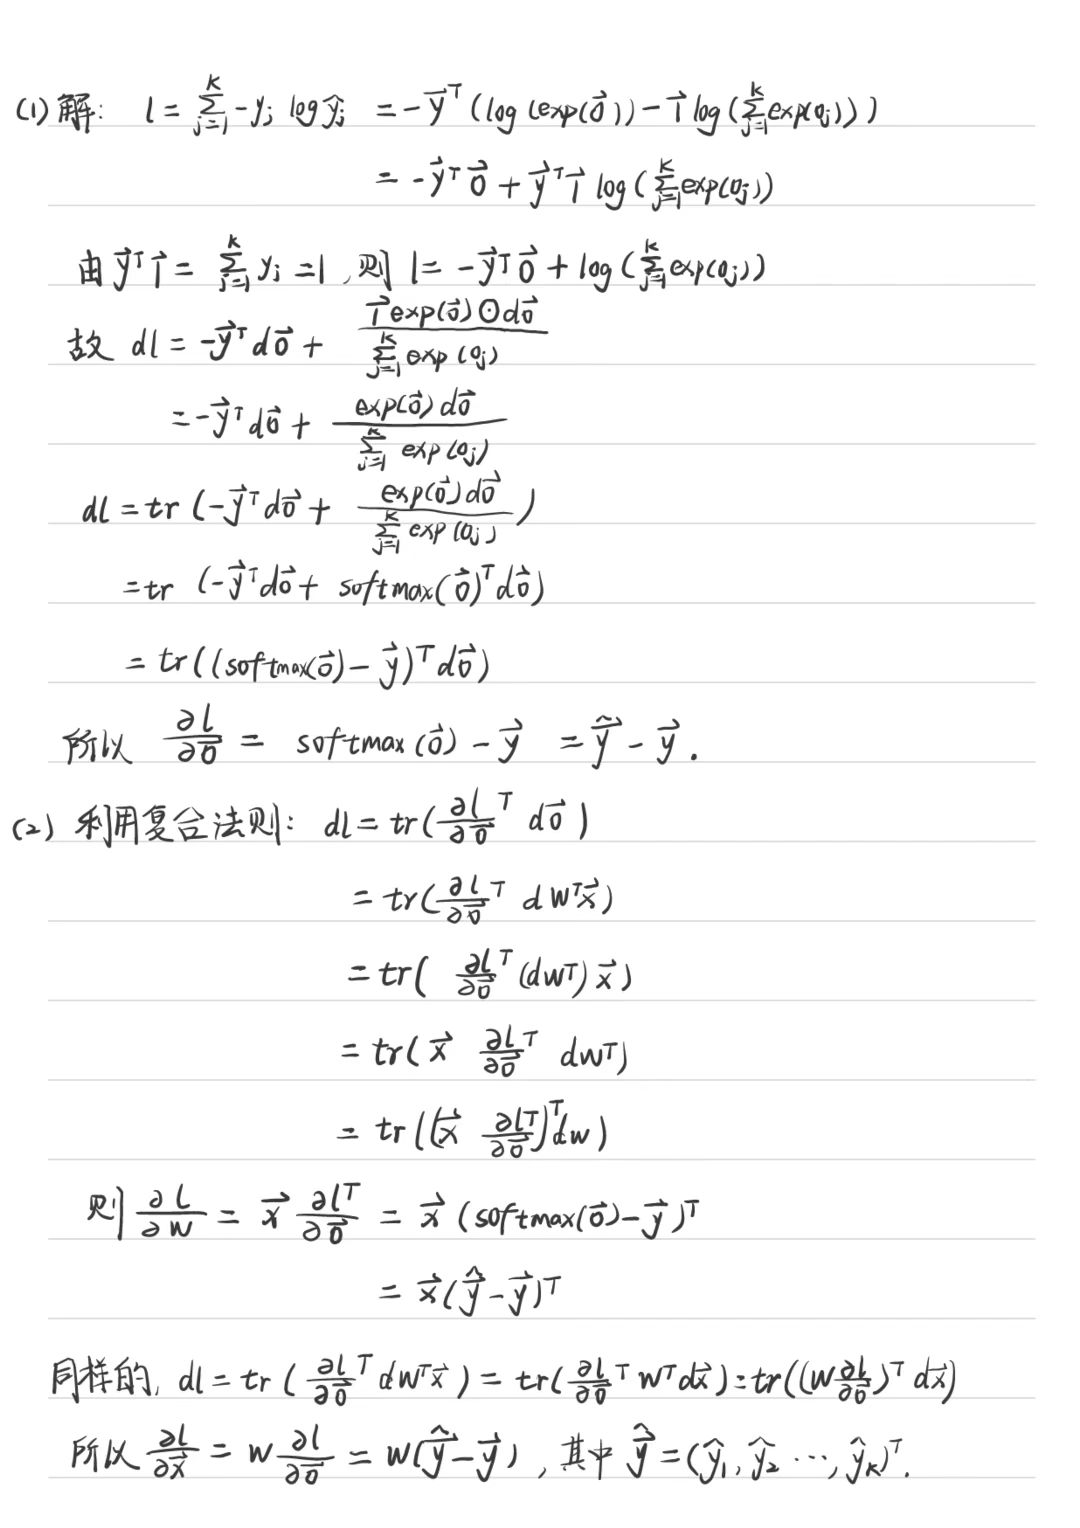 (1) 解: l = \sum_{j=1}^{K} -y_j log ŷ_j = -\vec{y}^T (log(exp(\vec{o})) - \vec{1} log(\sum_{j=1}^{K} exp(o_j)))
= -\vec{y}^T \vec{o} + \vec{y}^T \vec{1} log(\sum_{j=1}^{K} exp(o_j))
由 \vec{y}^T \vec{1} = \sum_{j=1}^{K} y_j = 1, 则 l = -\vec{y}^T \vec{o} + log(\sum_{j=1}^{K} exp(o_j))
故 dl = -\vec{y}^T d\vec{o} + \frac{\vec{1} exp(\vec{o}) ⊙ d\vec{o}}{\sum_{j=1}^{K} exp(o_j)}
= -\vec{y}^T d\vec{o} + \frac{exp(\vec{o}) d\vec{o}}{\sum_{j=1}^{K} exp(o_j)}
dl = tr(-\vec{y}^T d\vec{o} + \frac{exp(\vec{o}) d\vec{o}}{\sum_{j=1}^{K} exp(o_j)})
= tr (-\vec{y}^T d\vec{o} + softmax(\vec{o})^T d\vec{o})
= tr((softmax(\vec{o}) - \vec{y})^T d\vec{o})
所以 \frac{∂l}{∂\vec{o}} = softmax(\vec{o}) - \vec{y} = \hat{\vec{y}} - \vec{y}.
(2) 利用复合法则: dl = tr(\frac{∂l}{∂\vec{o}}^T d\vec{o})
= tr(\frac{∂l}{∂\vec{o}}^T dW^T\vec{x})
= tr(\frac{∂l}{∂\vec{o}}^T (dW^T) \vec{x})
= tr(\vec{x} \frac{∂l}{∂\vec{o}}^T dW^T)
= tr((\vec{x} \frac{∂l}{∂\vec{o}}^T)^T dW)
则 \frac{∂l}{∂W} = \vec{x} \frac{∂l}{∂\vec{o}}^T = \vec{x} (softmax(\vec{o}) - \vec{y})^T
= \vec{x}(\hat{\vec{y}} - \vec{y})^T
同样的, dl = tr(\frac{∂l}{∂\vec{o}}^T dW^T\vec{x}) = tr(\frac{∂l}{∂\vec{o}}^T W^T d\vec{x}) = tr((W\frac{∂l}{∂\vec{o}})^T d\vec{x})
所以 \frac{∂l}{∂\vec{x}} = W\frac{∂l}{∂\vec{o}} = W(\hat{\vec{y}} - \vec{y}), 其中 \hat{\vec{y}} = (ŷ_1, ŷ_2 ⋯, ŷ_K)^T.